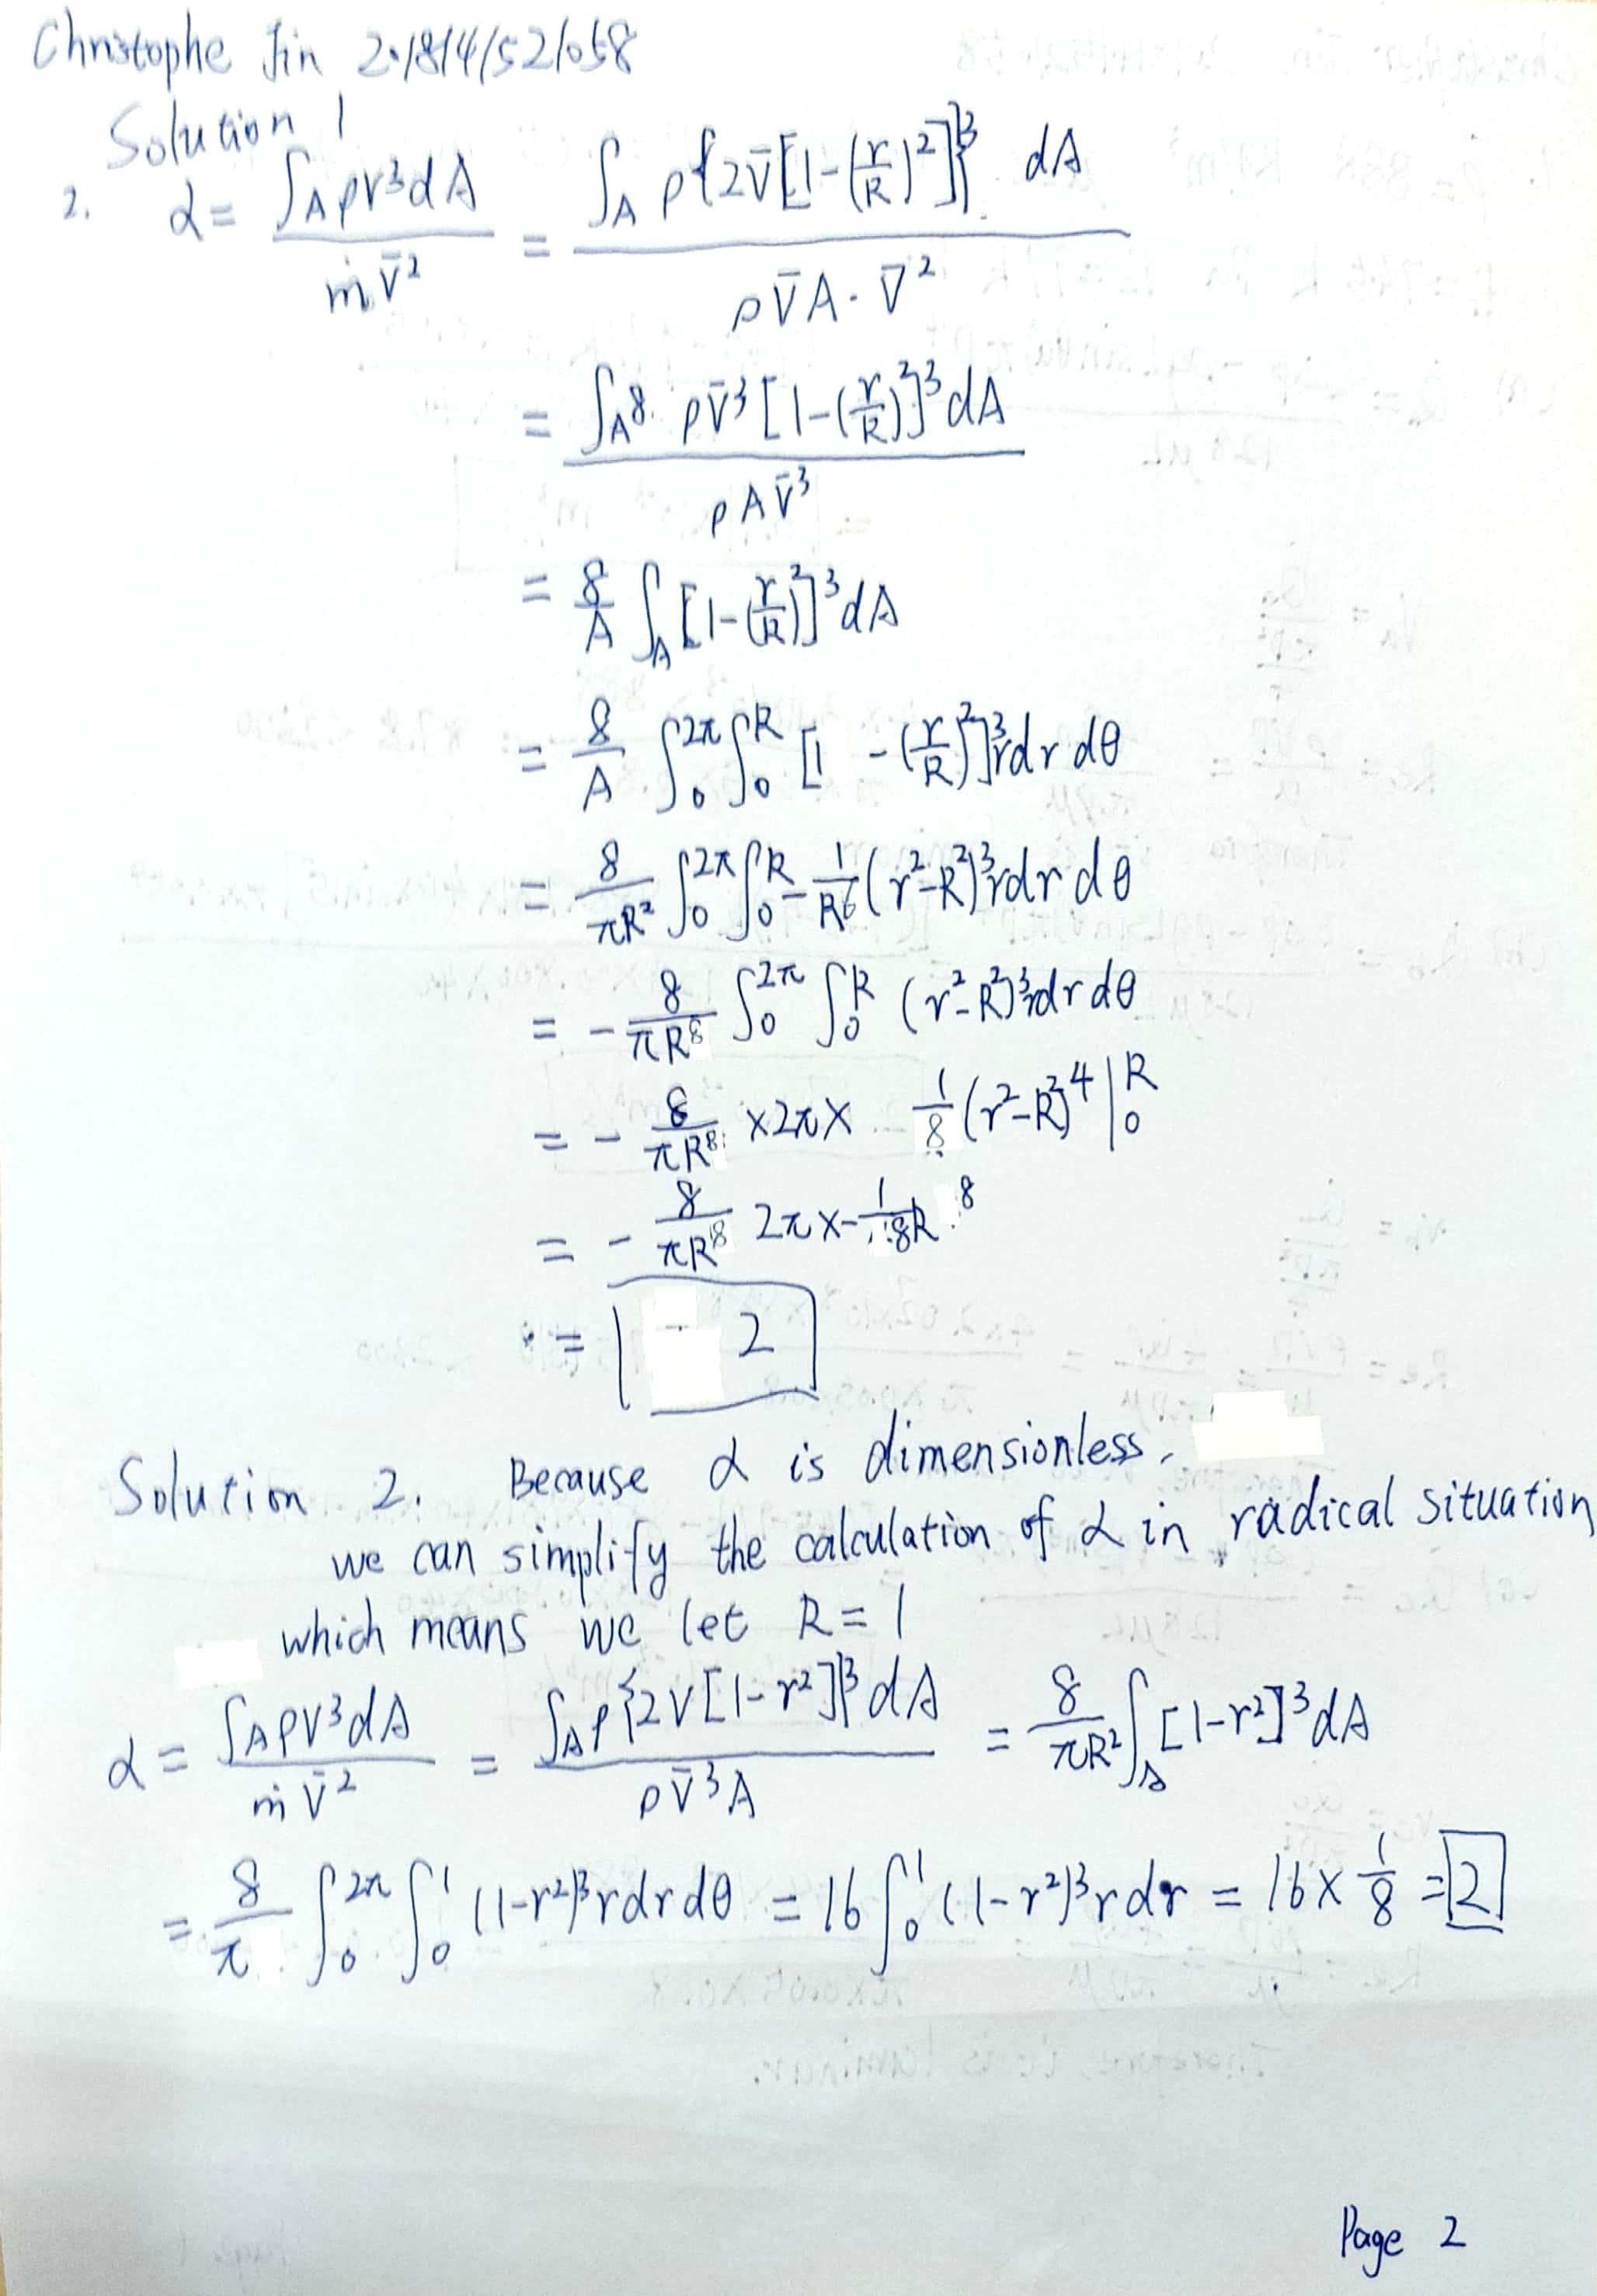 Christophe Jin 2018141521058
Solution 1
2. α = ∫_A ρV³dA / ṁV̄² = ∫_A ρ{2V̄[1-(r/R)²]}³ dA / ρV̄A·V̄²
= ∫_A 8 ρV̄³[1-(r/R)²]³dA / ρAV̄³
= 8/A ∫_A [1-(r/R)²]³dA
= 8/A ∫₀^2π ∫₀^R [1-(r/R)²]³rdr dθ
= 8/πR² ∫₀^2π ∫₀^R -1/R⁶ (r²-R²)³rdr dθ
= -8/πR⁸ ∫₀^2π ∫₀^R (r²-R²)³rdr dθ
= -8/πR⁸ ×2π× 1/8 (r²-R²)⁴|₀^R
= -8/πR⁸ 2π×-1/8 R⁸
= 2
Solution 2. Because α is dimensionless,
we can simplify the calculation of α in radical situation
which means we let R=1
α = ∫_A ρV³dA / ṁV̄² = ∫_A ρ{2V[1-r²]}³dA / ρV̄³A = 8/πR² ∫_A [1-r²]³dA
= 8/π ∫₀^2π ∫₀^1 (1-r²)³rdrdθ = 16 ∫₀^1 (1-r²)³rdr = 16×1/8 = 2
Page 2